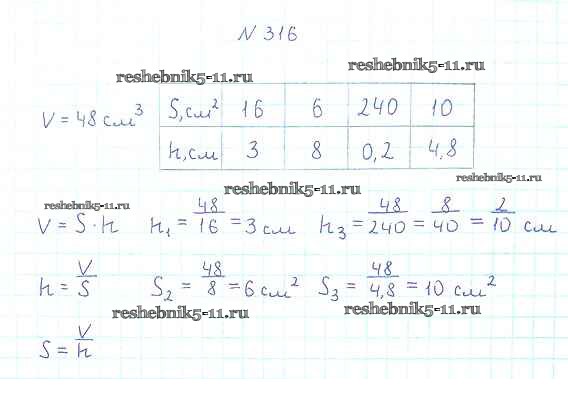 N 316
reshebnik5-11.ru reshebnik5-11.ru
V = 48 см³
S, см² 16 6 240 10
h, см 3 8 0,2 4,8
reshebnik5-11.ru reshebnik5-11.ru reshebnik5-11.ru
V = S · h h₁ = 48/16 = 3 см h₃ = 48/240 = 8/40 = 2/10 см
h = V/S S₂ = 48/8 = 6 см² S₃ = 48/4,8 = 10 см²
reshebnik5-11.ru reshebnik5-11.ru
S = V/h